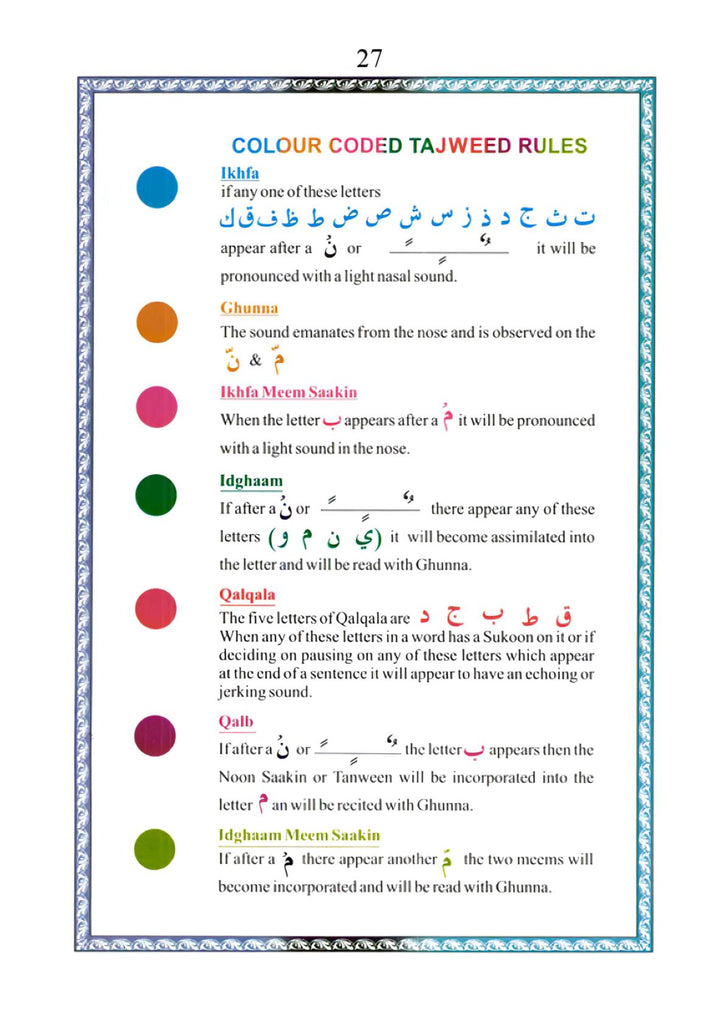 27
COLOUR CODED TAJWEED RULES
Ikhfa
if any one of these letters
ت ث ج د ذ ز س ش ص ض ط ظ ف ق ك
appear after a نْ or ً ٍ ٌ it will be
pronounced with a light nasal sound.
Ghunna
The sound emanates from the nose and is observed on the
نّ & مّ
Ikhfa Meem Saakin
When the letter ب appears after a مْ it will be pronounced
with a light sound in the nose.
Idghaam
If after a نْ or ً ٍ ٌ there appear any of these
letters (ي ن م و) it will become assimilated into
the letter and will be read with Ghunna.
Qalqala
The five letters of Qalqala are ق ط ب ج د
When any of these letters in a word has a Sukoon on it or if
deciding on pausing on any of these letters which appear
at the end of a sentence it will appear to have an echoing or
jerking sound.
Qalb
If after a نْ or ً ٍ ٌ the letter ب appears then the
Noon Saakin or Tanween will be incorporated into the
letter م an will be recited with Ghunna.
Idghaam Meem Saakin
If after a مْ there appear another مّ the two meems will
become incorporated and will be read with Ghunna.